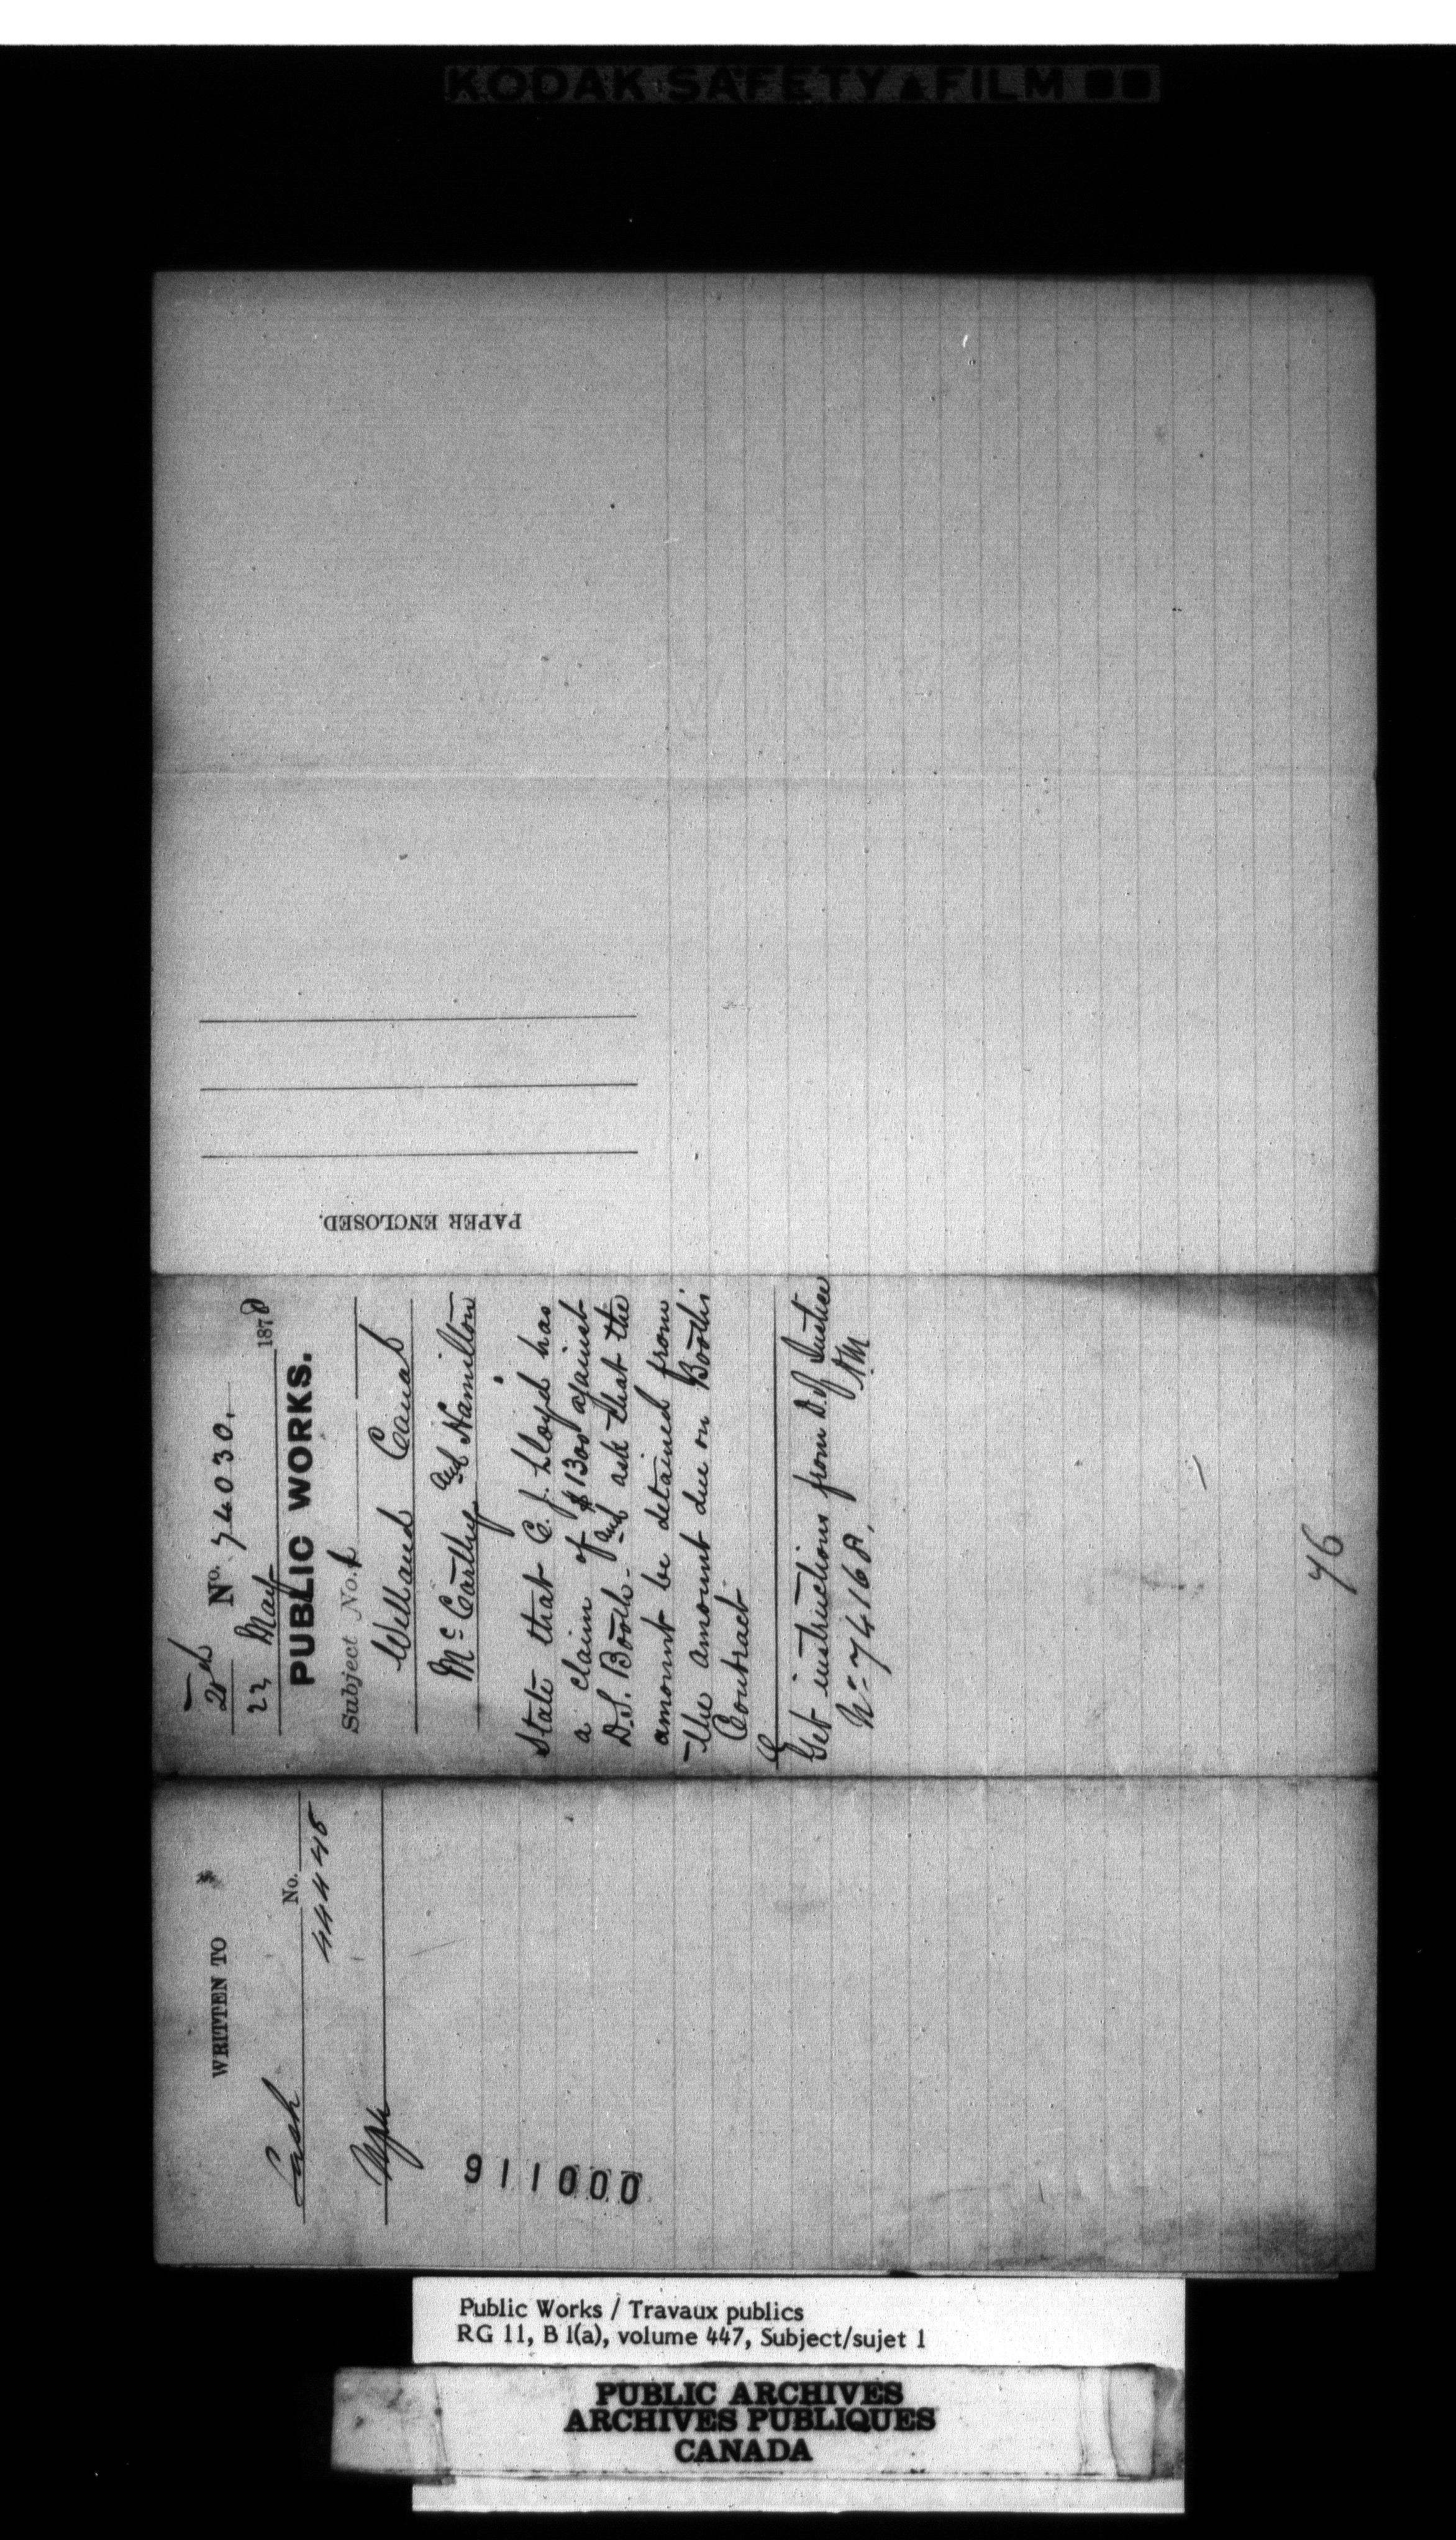 KODAK SAFETY FILM
PAPER ENCLOSED.
No. 74030.
22 May 1878
PUBLIC WORKS.
Subject No. 1
Welland Canal
McCarthy and Hamilton
State that C. J. Lloyd has
a claim of $1300 against
D.S. Booth. and ask that the
amount be detained from
the amount due on Booth's
Contract
Get instructions from D. of Justice
No 74168.
76
WRITTEN TO
No.
44445
911000
Public Works / Travaux publics
RG 11, B 1(a), volume 447, Subject/sujet 1
PUBLIC ARCHIVES
ARCHIVES PUBLIQUES
CANADA